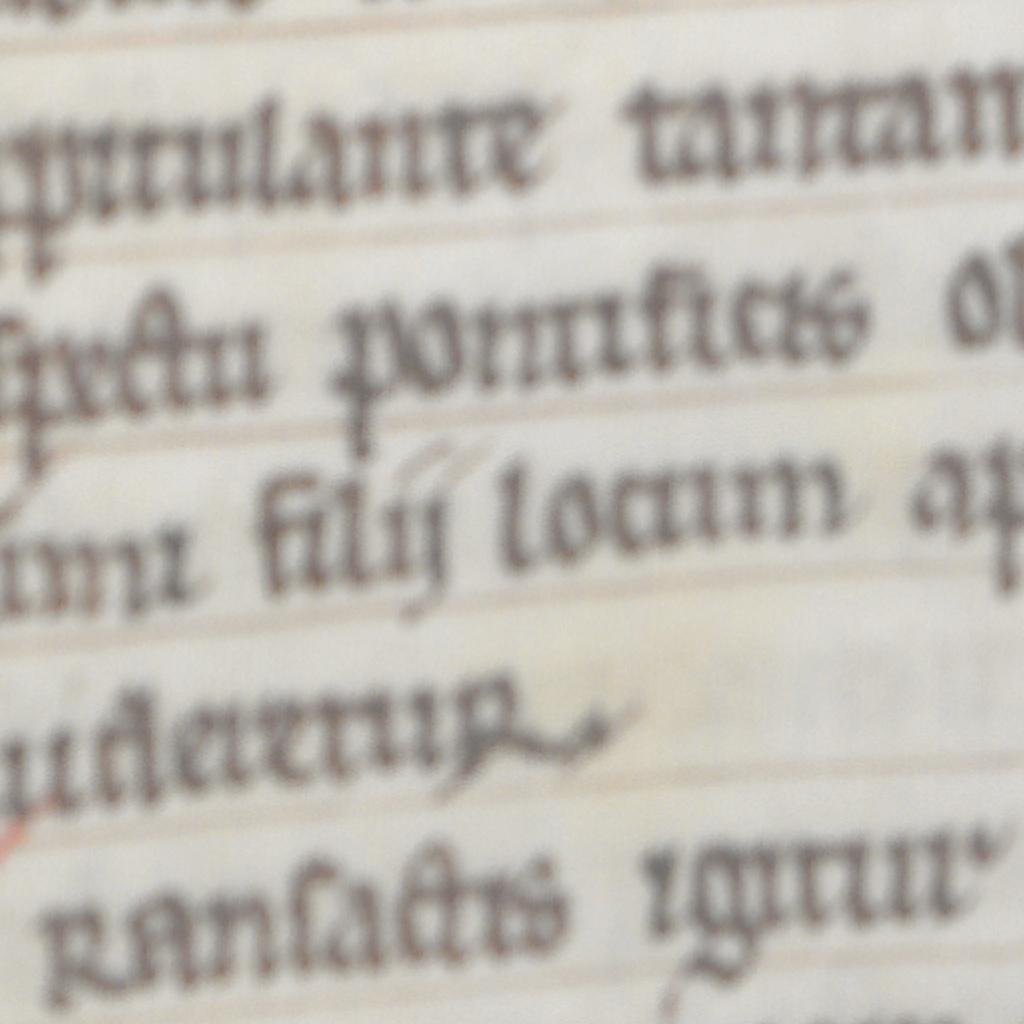 pitulante tantam
spectu pontificis ob
unt filij locum ap
uderetur
Ransactis igitur